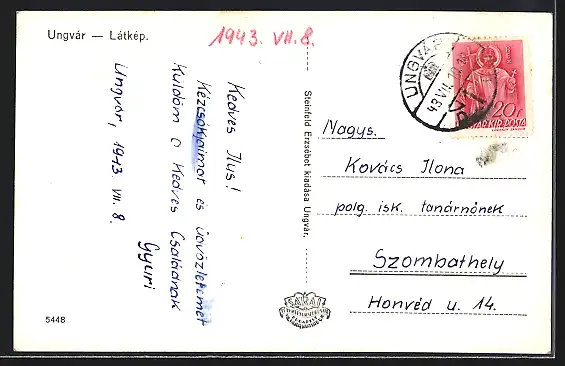 Ungvár — Látkép.
1943. VII. 8.
Kedves Ilus!
Kézcsókjaimat és üdvözletemet
küldöm a Kedves Családnak
Gyuri
Ungvár, 1943. VII. 8.
Steinfeld Erzsébet kiadása Ungvár.
UNGVÁR
43 VII. 10.
20f
MAGYAR KIR. POSTA
Nagys.
Kovács Ilona
polg. isk. tanárnőnek
Szombathely
Honvéd u. 14.
5448